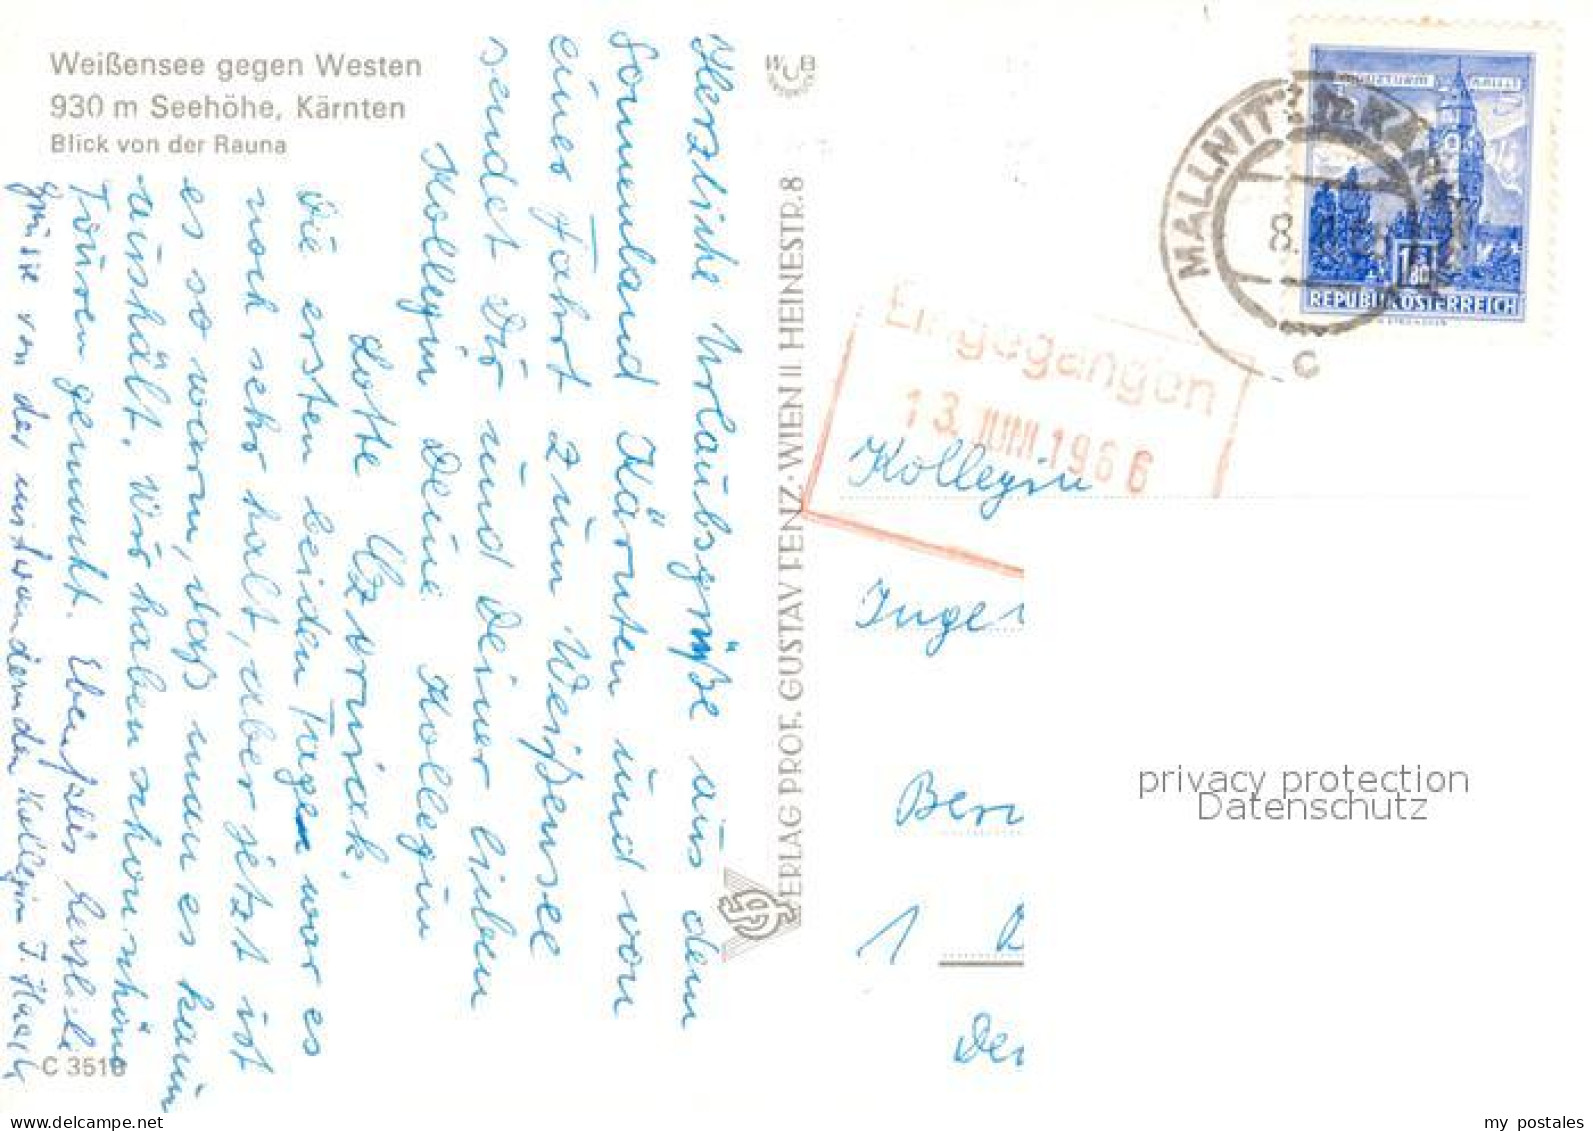 Weißensee gegen Westen
930 m Seehöhe, Kärnten
Blick von der Rauna
Herzliche Urlaubsgrüße aus dem
Sonnenland Kärnten und von
einer Fahrt zum Weißensee
sendet Dir und Deiner lieben
Kollegin Deine Kollegin
Lotte
Die ersten beiden Tage war es
noch sehr kalt, aber jetzt ist
es so warm, daß man es kaum
aushält. Wir haben schon schöne
Touren gemacht. Ebenfalls herzliche
Grüße von der mitwandernden Kollegin I. Haack
C 3516
WCB
VERLAG PROF. GUSTAV FENZ·WIEN II. HEINESTR. 8
MALLNITZ
C
8.
REPUBLIK ÖSTERREICH
1.80
Eingegangen
13. JUNI 1966
Kollegin
Inge
Ber
1 B
Der
privacy protection
Datenschutz
www.delcampe.net
my_postales